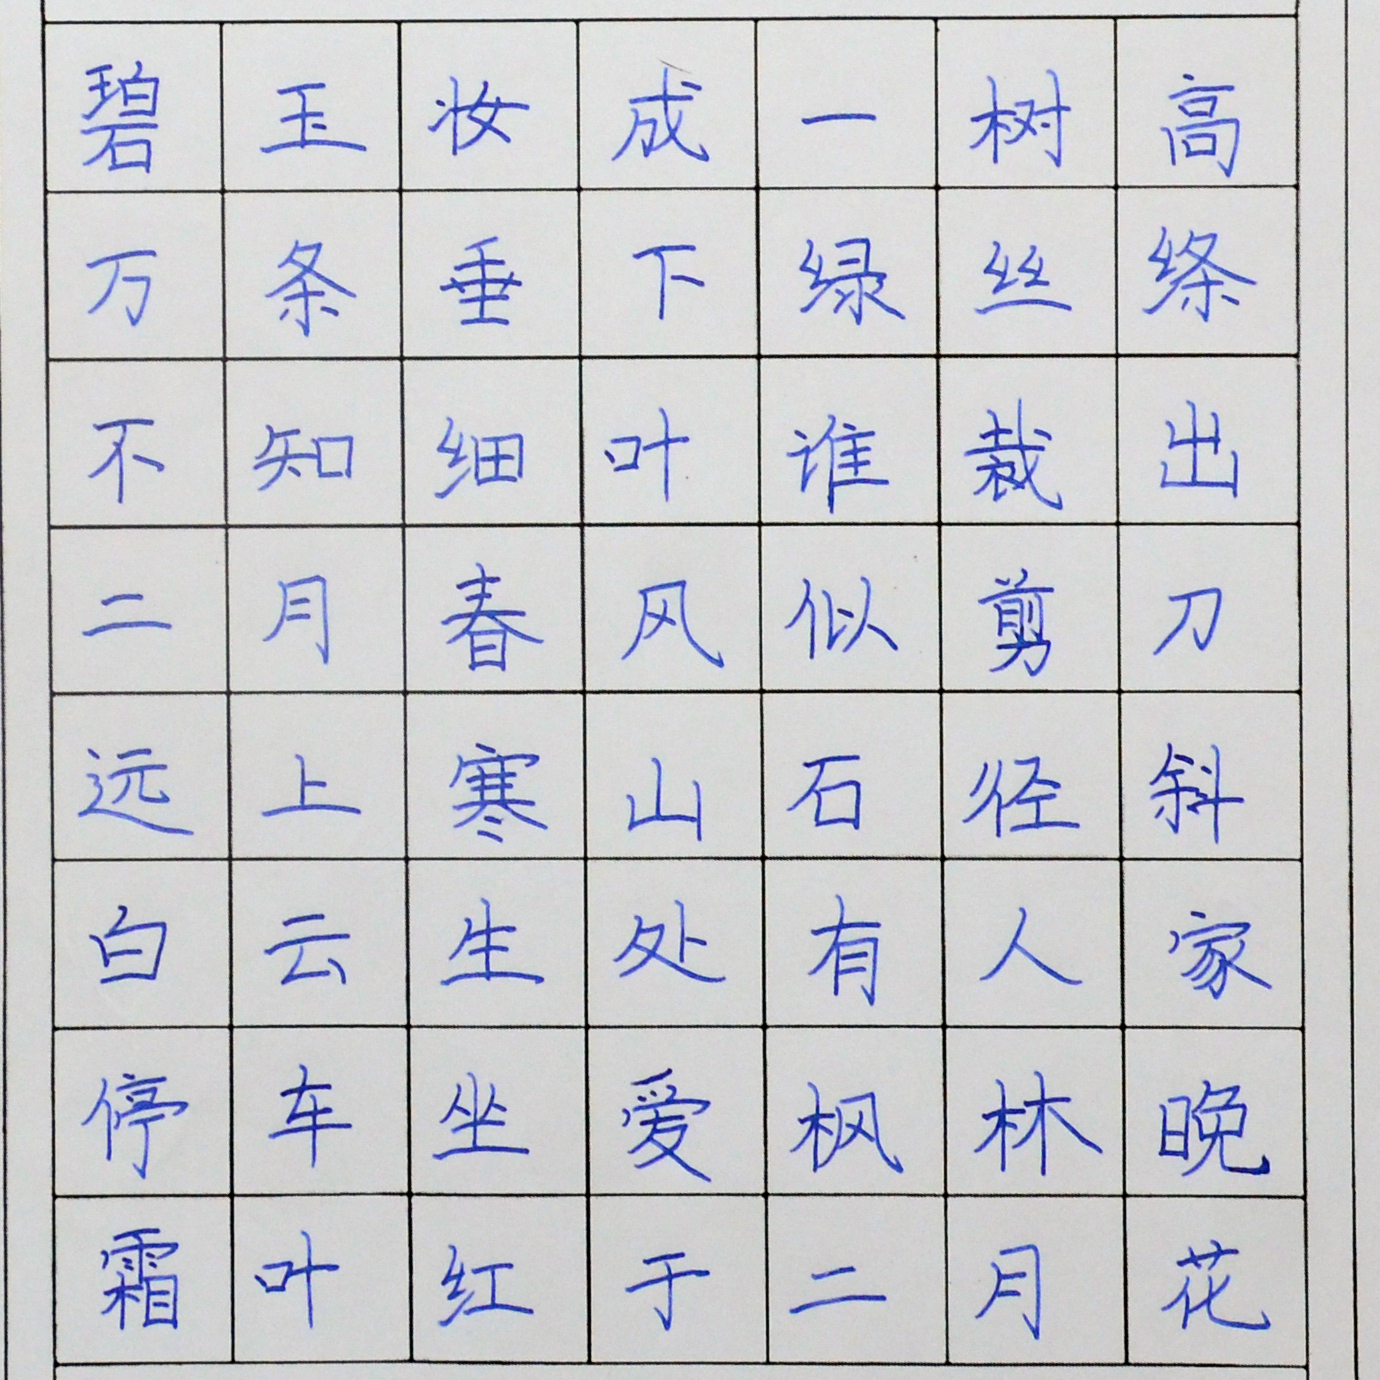 碧玉妆成一树高
万条垂下绿丝绦
不知细叶谁裁出
二月春风似剪刀
远上寒山石径斜
白云生处有人家
停车坐爱枫林晚
霜叶红于二月花